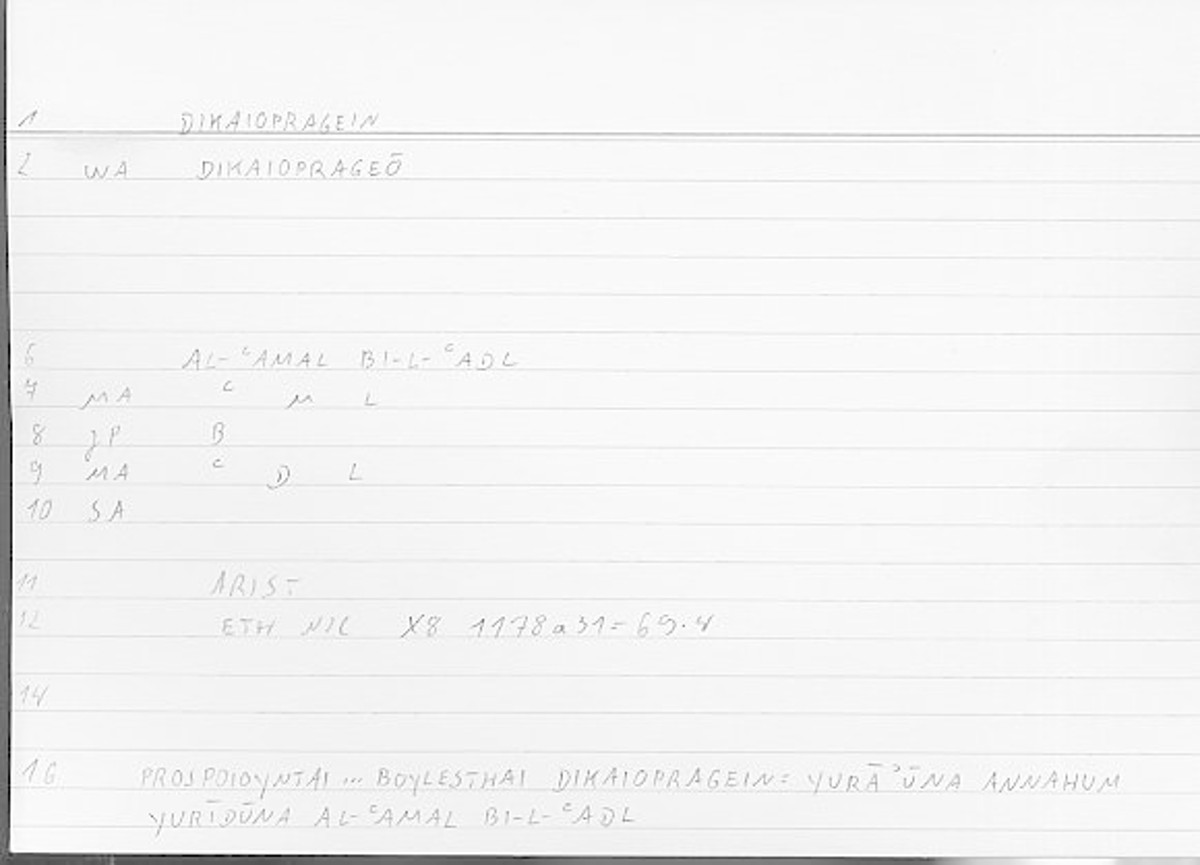 1 DIKAIOPRAGEIN
2 WA DIKAIOPRAGEŌ
6 AL-ʿAMAL BI-L-ʿADL
7 MA ʿ M L
8 JP B
9 MA ʿ D L
10 SA
11 ARIST
12 ETH NIC X8 1178a31=69.4
14
16 PROSPOIOYNTAI ... BOYLESTHAI DIKAIOPRAGEIN= YURĀʾŪNA ANNAHUM
YURĪDŪNA AL-ʿAMAL BI-L-ʿADL